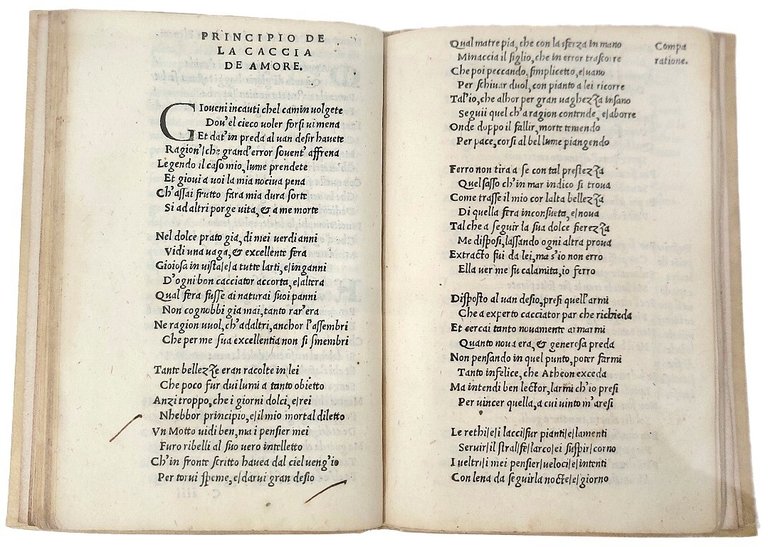 PRINCIPIO DE
LA CACCIA
DE AMORE.
Gioveni incauti chel camin volgete
Dou'el cieco voler forsi vi mena
Et dat'in preda al van desir havete
Ragion'/che grand'error sovent'affrena
Legendo il caso mio, lume prendete
Et giovi a voi la mia nociva pena
Ch'assai frutto fara mia dura sorte
Si ad altri porge vita, & a me morte
Nel dolce prato gia, di mei verdi anni
Vidi una vaga, & excellente fera
Gioiosa in vista/e/a tutte l'arti, e/inganni
D'ogni bon cacciator accorta, e/altera
Qual fera fusse ai naturai suoi panni
Non cognobbi gia mai, tanto rar'era
Ne ragion vuol, ch'ad altri, anchor l'assembri
Che per me sua excellentia non si smembri
Tante bellezze eran racolte in lei
Che poco fur dui lumi a tanto obietto
Anzi troppo, che i giorni dolci, e/rei
Nhebbor principio, e/il mio mortal diletto
Vn Motto vidi ben, ma i pensier mei
Furo ribelli al suo vero intelletto
Ch'in fronte scritto havea dal ciel veng'io
Per torui speme, e/darui gran desio
Qual matre pia, che con la sferza in mano
Compa
Minaccia il figlio, che in error trascorre
ratione.
Che poi peccando, simplicetto, e/vano
Per schivar duol, con pianto a lei ricorre
Tal'io, che alhor per gran vaghezza insano
Seguii quel ch'a ragion contende, e/aborre
Onde doppo il fallir, morte temendo
Per pace, corsi al bel lume piangendo
Ferro non tira a se con tal prestezza
Quel sasso ch'in mar indico si trova
Come trasse il mio cor l'alta bellezza
Di quella fera inconsueta, e/nova
Tal che a seguir la sua dolce fierezza
Me disposi, lassando ogni altra prova
Extracto fui da lei, ma s'io non erro
Ella ver me fu calamita, io ferro
Disposto al van desio, presi quell'armi
Che a experto cacciator par che richieda
Et cercai tanto novamente aimarmi
Quanto nova era, & generosa preda
Non pensando in quel punto, poter farmi
Tanto infelice, che Atheon exceda
Ma intendi ben lector, larmi ch'io presi
Per vincer quella, a cui vinto m'aresi
Le rethi/e i lacci/fur pianti/e/lamenti
Seruir/il stral/fe/larco/ei suspir/corno
I veltri/i mei pensier/veloci/e/intenti
Con lena da seguirla nocte/e/giorno